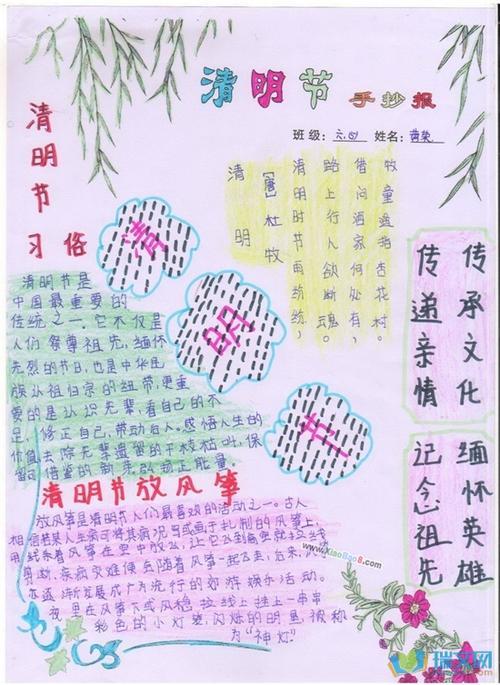 清明节 手抄报
班级：六四 姓名：黄荣
清明节
习俗
清明
[唐] 杜牧
清明时节雨纷纷，
路上行人欲断魂。
借问酒家何处有，
牧童遥指杏花村。
清
明
节
清明节是
中国最重要的
传统之一，它不仅是
人们祭尊祖先，缅怀
先烈的节日，也是中华民
族认祖归宗的纽带，更重
要的是认识先辈，看自己的不
足，修正自己，带动后人，感悟人生的
价值，去除先辈遗留的
正能量。
传承文化
传递亲情
缅怀英雄
记念祖先
清明节放风筝
放风筝是清明节人们最喜欢的活动之一。古人
相信若某人生病可将其病况写或画于扎制的风筝上，
用线系着风筝在空中放飞，让它飞到高空就拉线
剪断，疾病灾难便会随着风筝一起飞走，后来，风筝
亦逐渐发展成广为流行的郊游娱乐活动。
夜里在风筝下或风稳拉线上挂上一串串
彩色的小灯笼，闪烁的明星，被称
为“神灯”
www.XiaoBao8.com
瑞文网